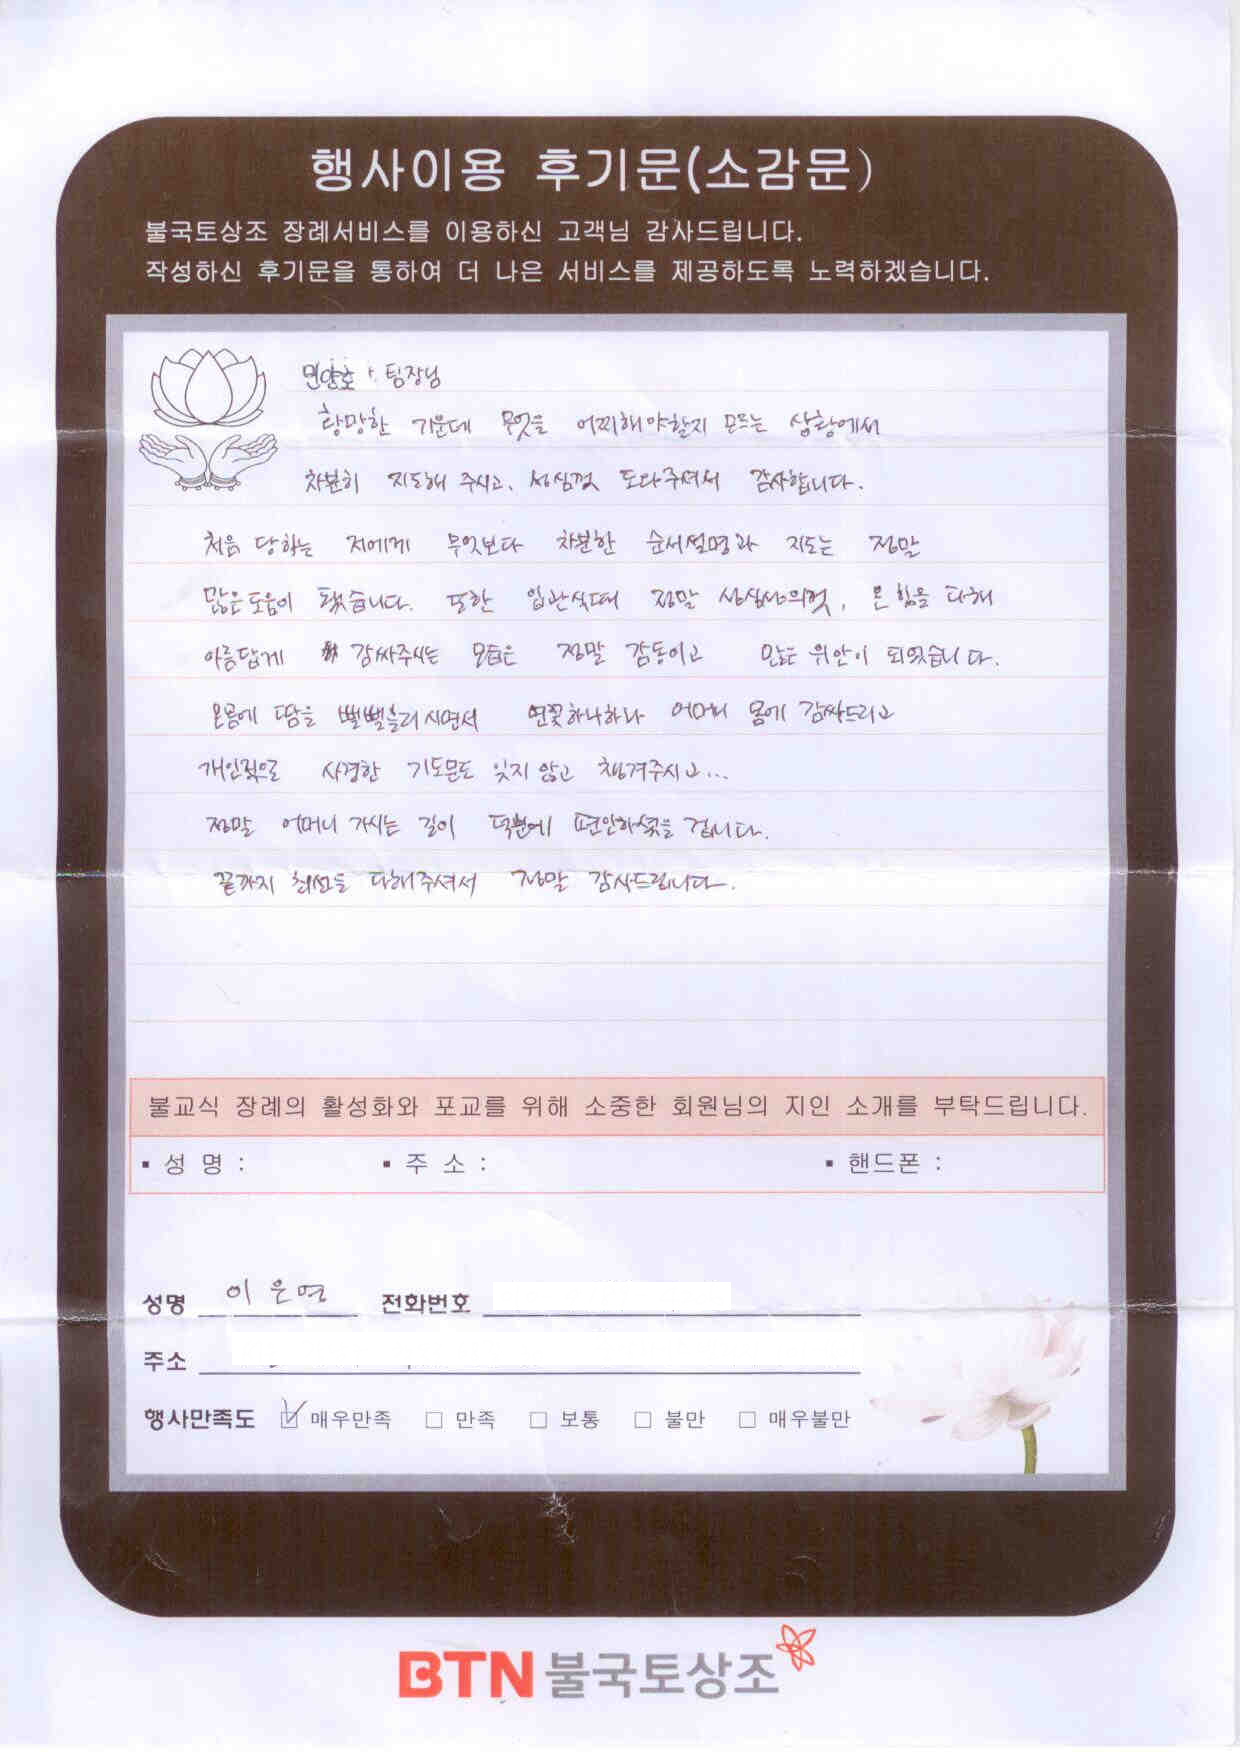 행사이용 후기문(소감문)
불국토상조 장례서비스를 이용하신 고객님 감사드립니다.
작성하신 후기문을 통하여 더 나은 서비스를 제공하도록 노력하겠습니다.
민양호 팀장님
황망한 가운데 무엇을 어찌해야할지 모르는 상황에서
차분히 지도해 주시고, 성심껏 도와주셔서 감사합니다.
처음 당하는 저에게 무엇보다 차분한 순서설명과 지도는 정말
많은도움이 됐습니다. 또한 입관식때 정말 성심성의껏, 온 힘을 다해
아름답게 감싸주시는 모습은 정말 감동이고 많은 위안이 되었습니다.
온몸에 땀을 뻘뻘흘리시면서 연꽃하나하나 어머니 몸에 감싸드리고
개인적으로 사경한 기도문도 잊지 않고 챙겨주시고...
정말 어머니 가시는 길이 덕분에 편안하셨을 겁니다.
끝까지 최선을 다해주셔서 정말 감사드립니다.
불교식 장례의 활성화와 포교를 위해 소중한 회원님의 지인 소개를 부탁드립니다.
▪ 성 명 : ▪ 주 소 : ▪ 핸드폰 :
성명 이은연 전화번호
주소
행사만족도 ☑ 매우만족 □ 만족 □ 보통 □ 불만 □ 매우불만
BTN 불국토상조